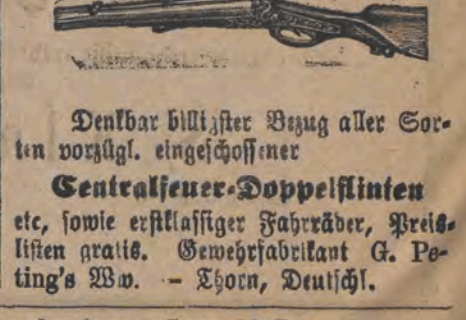 Denkbar billigster Bezug aller Sor-
ten vorzügl. eingeschossener
Centralfeuer-Doppelflinten
etc, sowie erstklassiger Fahrräder, Preis-
listen gratis. Gewehrfabrikant G. Pe-
ting's Ww. - Thorn, Deutschl.